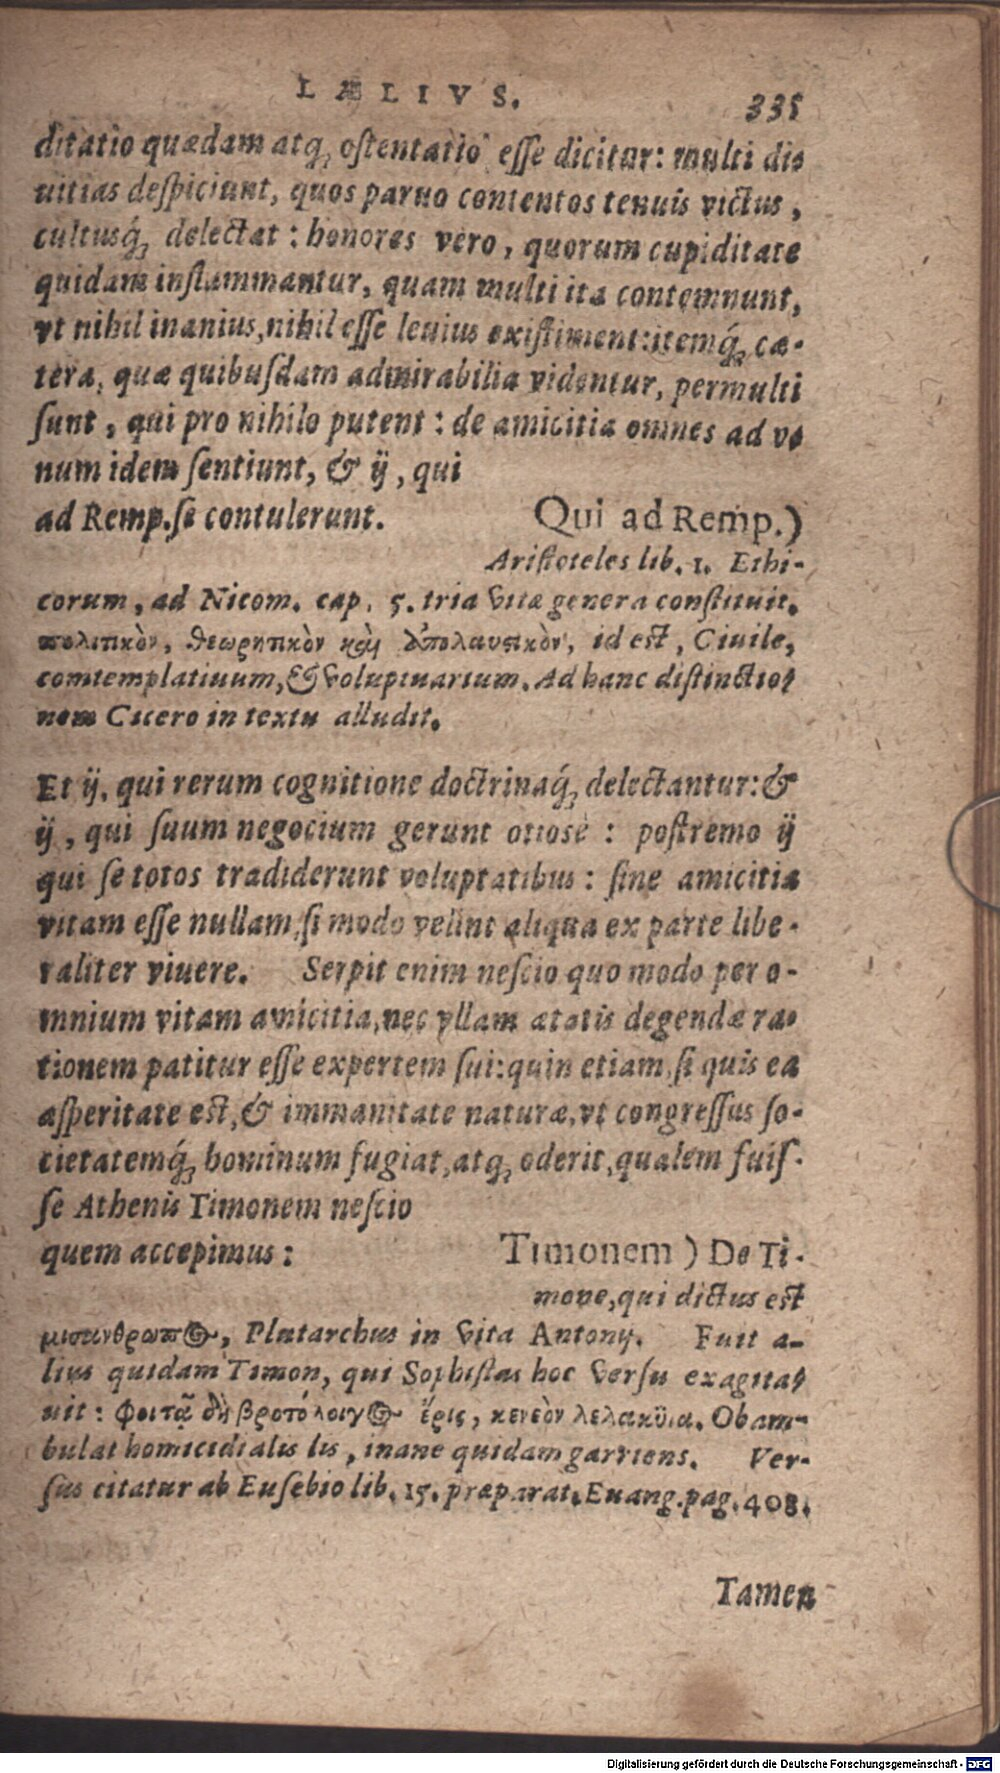 LÆLIVS. 335
ditatio quædam atq́; ostentatio esse dicitur: multi di=
uitias despiciunt, quos paruo contentos tenuis victus,
cultusq́; delectat: honores vero, quorum cupiditate
quidam inflammantur, quam multi ita contemnunt,
vt nihil inanius, nihil esse leuius existiment: itemq́; cæ-
tera, quæ quibusdam admirabilia videntur, permulti
sunt, qui pro nihilo putent: de amicitia omnes ad v=
num idem sentiunt, & ij, qui
ad Remp. se contulerunt.
Qui ad Remp.)
Aristoteles lib. 1. Ethi-
corum, ad Nicom. cap. 5. tria vitæ genera constituit.
πολιτικὸν, θεωρητικὸν καὶ ἀπολαυστικὸν, id est, Ciuile,
comtemplatiuum, & voluptuarium. Ad hanc distinctio=
nem Cicero in textu alludit.
Et ij, qui rerum cognitione doctrinaq́; delectantur: &
ij, qui suum negocium gerunt otiose: postremo ij
qui se totos tradiderunt voluptatibus: sine amicitia
vitam esse nullam, si modo velint aliqua ex parte libe-
raliter viuere. Serpit enim nescio quo modo per o-
mnium vitam amicitia, nec vllam ætatis degendæ ra-
tionem patitur esse expertem sui: quin etiam, si quis ea
asperitate est, & immanitate naturæ, vt congressus so-
cietatemq́; hominum fugiat, atq; oderit, qualem fuis-
se Athenis Timonem nescio
quem accepimus:
Timonem) De Ti-
mone, qui dictus est
μισάνθρωπος, Plutarchus in vita Antonij. Fuit a-
lius quidam Timon, qui Sophistas hoc versu exagita=
uit: φοιτᾷ δὲ βροτόλοιγος ἔρις, κενεὸν λελακῦια. Obam-
bulat homicidialis lis, inane quidam garriens. Ver-
sus citatur ab Eusebio lib. 15. præparat. Euang. pag. 408.
Tamen
Digitalisierung gefördert durch die Deutsche Forschungsgemeinschaft - DFG